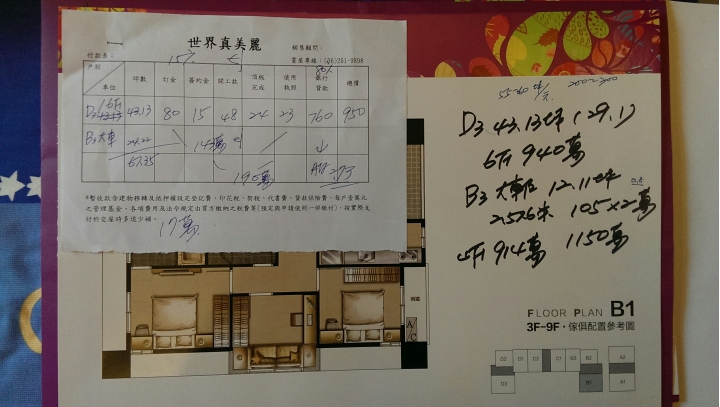 世界真美麗
付款表： 銷售顧問：
賞屋專線：(06)261-9898
15F
80%
戶別 車位 坪數 訂金 簽約金 開工款 頂板完成 使用執照 銀行貸款 總價
D3 6F 43.13 80 15 48 24 23 760 950
B3大車 24.22 143萬
67.35 190萬
※暫收款含建物移轉及抵押權設定登記費、印花稅、契稅、代書費、貸款保險費、每戶壹萬元
之管理基金、各項費用及法令規定由買方繳納之稅費等(預定與申請使照一併繳付)，按實際支
付於交屋時多退少補。
17萬
D3 43.13坪 (29.1)
6F 940萬
B3 大車位 12.11坪
257.6米 105×2萬
4F 914萬 1150萬
A/C
FLOOR PLAN B1
3F-9F・傢俱配置參考圖
D3 D2 D1 C B3 B2 B1 A2 A1